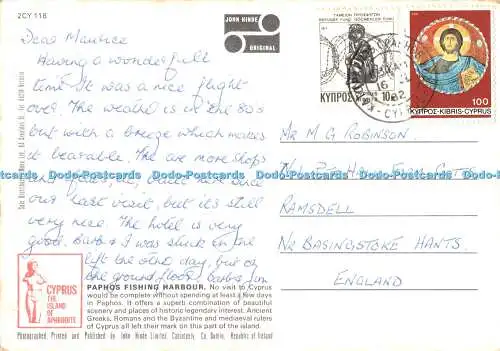 2CY 118
JOHN HINDE
ORIGINAL
Dear Maurice
Having a wonderfull
time. It was a nice flight
over. The weather is in the 80's
but with a breeze which makes
it bearable. The are more shops
and flats, etc, built here since
our last visit, but it's still
very nice. The hotel is very
good. Barb & I was stuck in the
left the other day, but on
the ground floor. Barb & Jim
КУПРОС KIBRIS 10
1977
82
ΚΥΠΡΟΣ-KIBRIS-CYPRUS 100
Mr M G ROBINSON
RAMSDELL
Nr BASINGSTOKE HANTS.
ENGLAND
CYPRUS
THE
ISLAND
OF
APHRODITE
PAPHOS FISHING HARBOUR. No visit to Cyprus
would be complete without spending at least a few days
in Paphos. It offers a superb combination of beautiful
scenery and places of historic legendary interest. Ancient
Greeks, Romans and the Byzantine and mediaeval rulers
of Cyprus all left their mark on this part of the island.
Photographed, Printed and Published by John Hinde Limited, Cabinteely, Co. Dublin, Republic of Ireland
Dodo-Postcards